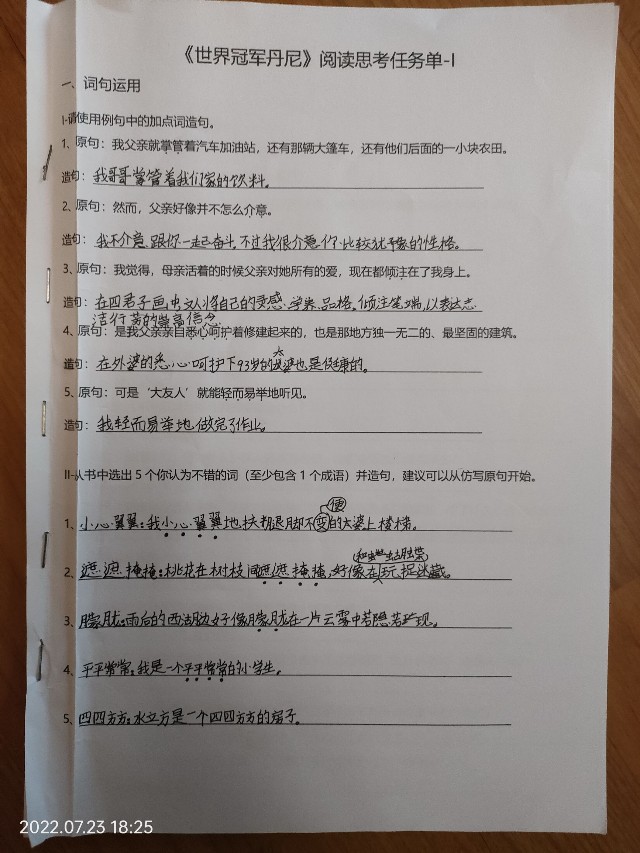 《世界冠军丹尼》阅读思考任务单-I
一、词句运用
I-请使用例句中的加点词造句。
1、原句：我父亲就掌管着汽车加油站，还有那辆大篷车，还有他们后面的一小块农田。
造句：我哥哥掌管着我们家的饮料。
2、原句：然而，父亲好像并不怎么介意。
造句：我不介意跟你一起奋斗，不过我很介意你比较犹豫的性格。
3、原句：我觉得，母亲活着的时候父亲对她所有的爱，现在都倾注在了我身上。
造句：在四君子画中文人将自己的灵感、学养、品格，倾注笔端，以表达志
洁行芳的崇高信念。
4、原句：是我父亲亲自悉心呵护着修建起来的，也是那地方独一无二的、最坚固的建筑。
造句：在外婆的悉心呵护下93岁的太婆也是健康的。
5、原句：可是‘大友人’就能轻而易举地听见。
造句：我轻而易举地做完了作业。
II-从书中选出5个你认为不错的词（至少包含1个成语）并造句，建议可以从仿写原句开始。
1、小心翼翼：我小心翼翼地扶腿脚不便的太婆上楼梯。
2、遮遮掩掩：桃花在树枝间遮遮掩掩，好像在玩捉迷藏。
3、朦胧：雨后的西湖边好像朦胧在一片云雾中若隐若现。
4、平平常常：我是一个平平常常的小学生。
5、四四方方：水立方是一个四四方方的房子。
2022.07.23 18:25